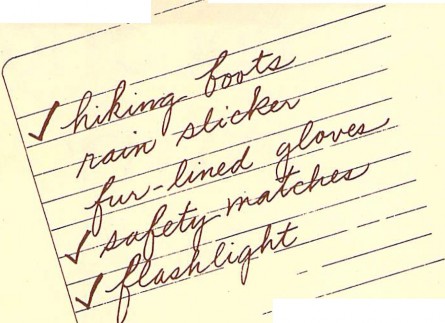 ✓ hiking boots
rain slicker
fur-lined gloves
✓ safety matches
✓ flashlight